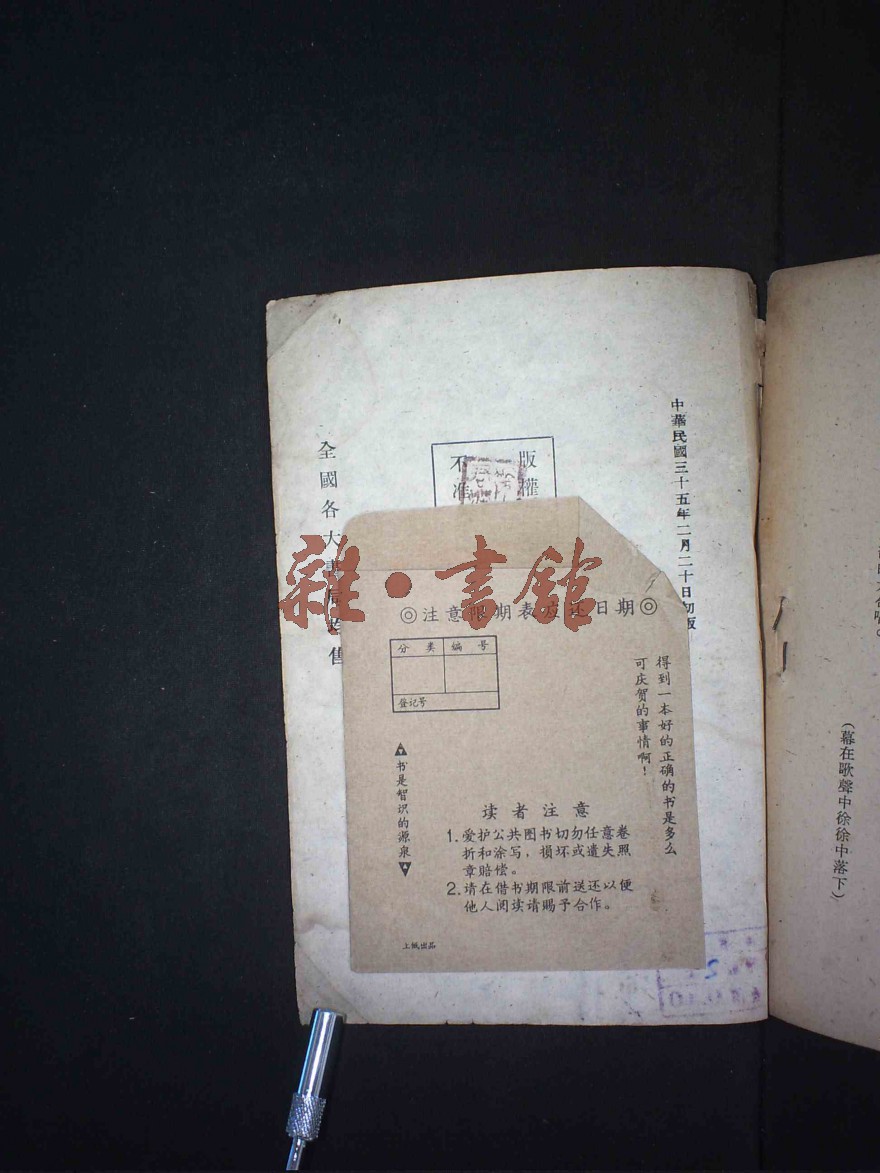 中華民國三十五年二月二十日初版
版權
不准
全國各大書局經售
雜·書館
◎注意限期表应还日期◎
分类 编号
登记号
得到一本好的正确的书是多么
可庆贺的事情啊！
书是智识的源泉
读者注意
1. 爱护公共图书切勿任意卷
折和涂写，损坏或遗失照
章赔偿。
2. 请在借书期限前送还以便
他人阅读请赐予合作。
上城出品
（幕在歌聲中徐徐中落下）